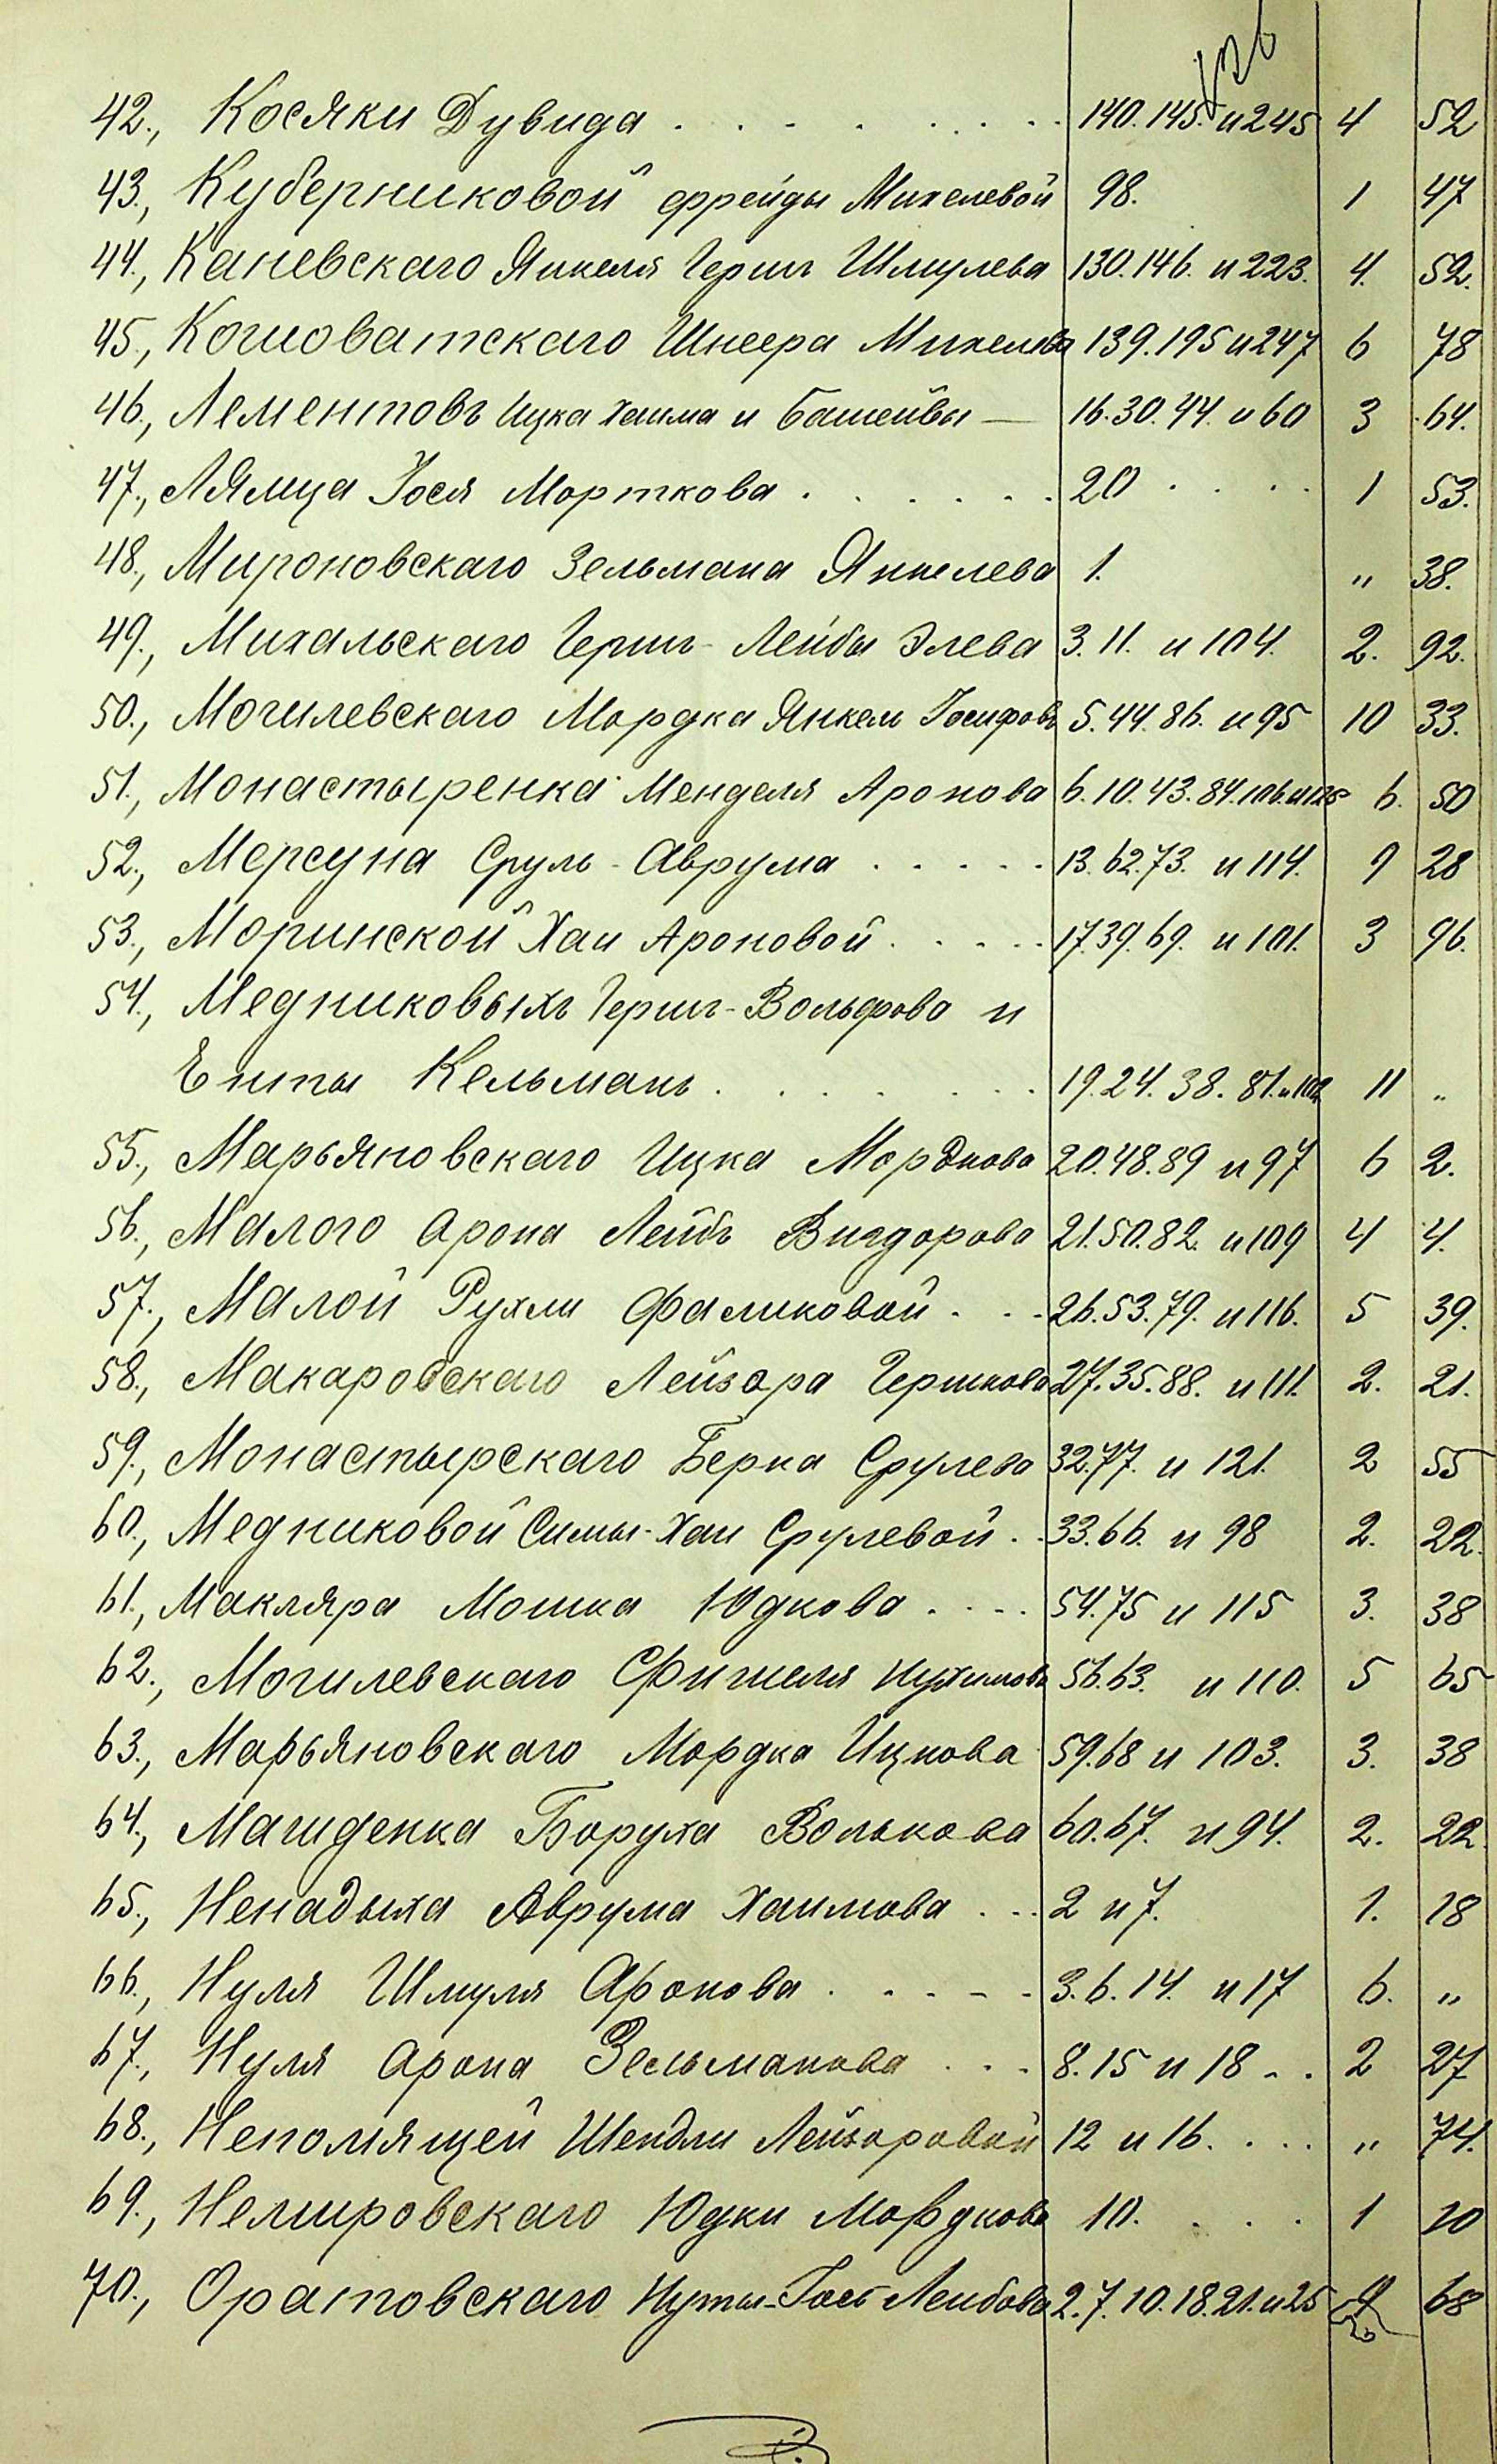 42., Косяки Дувида . . . . . . . . . 140. 145. и 245 4 52
43., Куберниковой Фрейды Михелевой 98. 1 47
44., Каневскаго Янкеля Герша Шмулева 130. 146. и 223. 4. 52.
45., Кошоватскаго Шнеера Михелева 139. 195 и 247 6 78
46., Лементовъ Ицка Хаима и Башейвы — 16. 30. 44. и 60 3 64.
47., Лямца Іося Морткова . . . . . . 20 . . . . 1 53.
48., Мироновскаго Зельмана Янкелева 1. " 38.
49., Михальскаго Герш-Лейбы Элева 3. 11. и 104. 2. 92.
50., Могилевскаго Мордка Янкель Іосифовъ 5. 44. 86. и 95 10 33.
51., Монастыренка Менделя Аронова 6. 10. 43. 84. 106. и 125 6. 50
52., Мерсуна Сруль-Аврума . . . . . 13. 62. 73. и 114. 9 28
53., Моринской Хаи Ароновой . . . . . 17. 39. 69. и 101. 3 96.
54., Медниковыхъ Герш-Вольфова и
Енты Кельманъ . . . . . . . 19. 24. 38. 81. и 102 11 "
55., Марьяновскаго Ицка Мордкова 20. 48. 89 и 97 6 2.
56., Малого Арона Лейбъ Вигдорова 21. 50. 82. и 109 4 4.
57., Малой Рухли Фаликовой . . . 26. 53. 79. и 116. 5 39.
58., Макаровскаго Лейзора Гершкова 27. 35. 88. и 111. 2. 21.
59., Монастырскаго Берка Срулева 32. 77. и 121. 2 55
60., Медниковой Симы-Хаи Срулевой . . 33. 66. и 98 2. 22.
61., Макляра Мошка Юдкова . . . . 54. 75 и 115 3. 38
62., Могилевскаго Фишеля Нухимовъ 56. 63. и 110. 5 65
63., Марьяновскаго Мордка Ицкова 59. 68 и 103. 3. 38
64., Магиденка Боруха Волькова 60. 67. и 94. 2. 22.
65., Ненадыха Аврума Хаимова . . . 2 и 7. 1. 18
66., Нуля Шмуля Аронова . . . . . 3. 6. 14. и 17 6. "
67., Нуля Арона Зельманова . . . 8. 15 и 18 . . 2 27
68., Непомящей Шендли Лейзоровой 12 и 16. . . . " 74.
69., Немировскаго Юдки Мордкова 10. . . . 1 20
70., Оратовскаго Нуты-Іось Лейбова 2. 7. 10. 18. 21. и 25 68